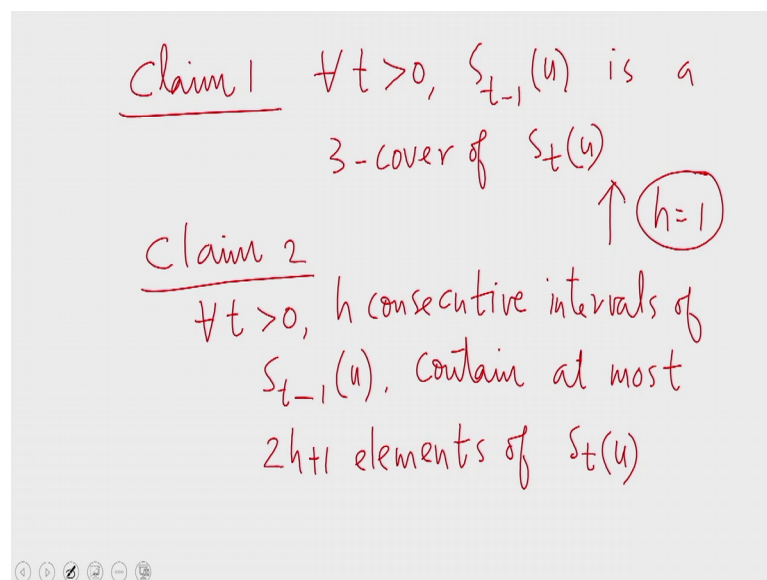 Claim 1 ∀ t > 0, S_{t-1}(u) is a
3-cover of S_t(u)
↑ h=1
Claim 2
∀ t > 0, h consecutive intervals of
S_{t-1}(u). contain at most
2h+1 elements of S_t(u)